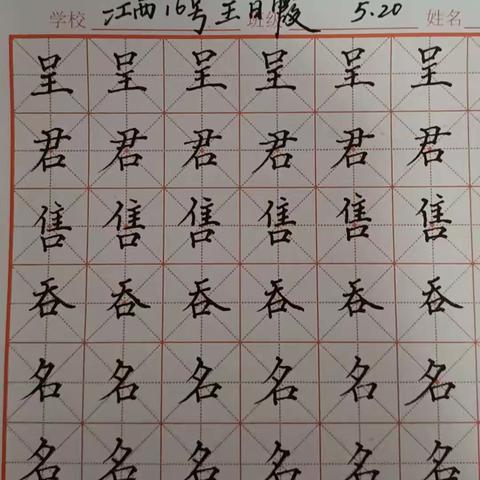 学校 江西16号王日霞 班级 5.20 姓名
呈呈呈呈呈呈
君君君君君君
售售售售售售
吞吞吞吞吞吞
名名名名名名
名名名名名名